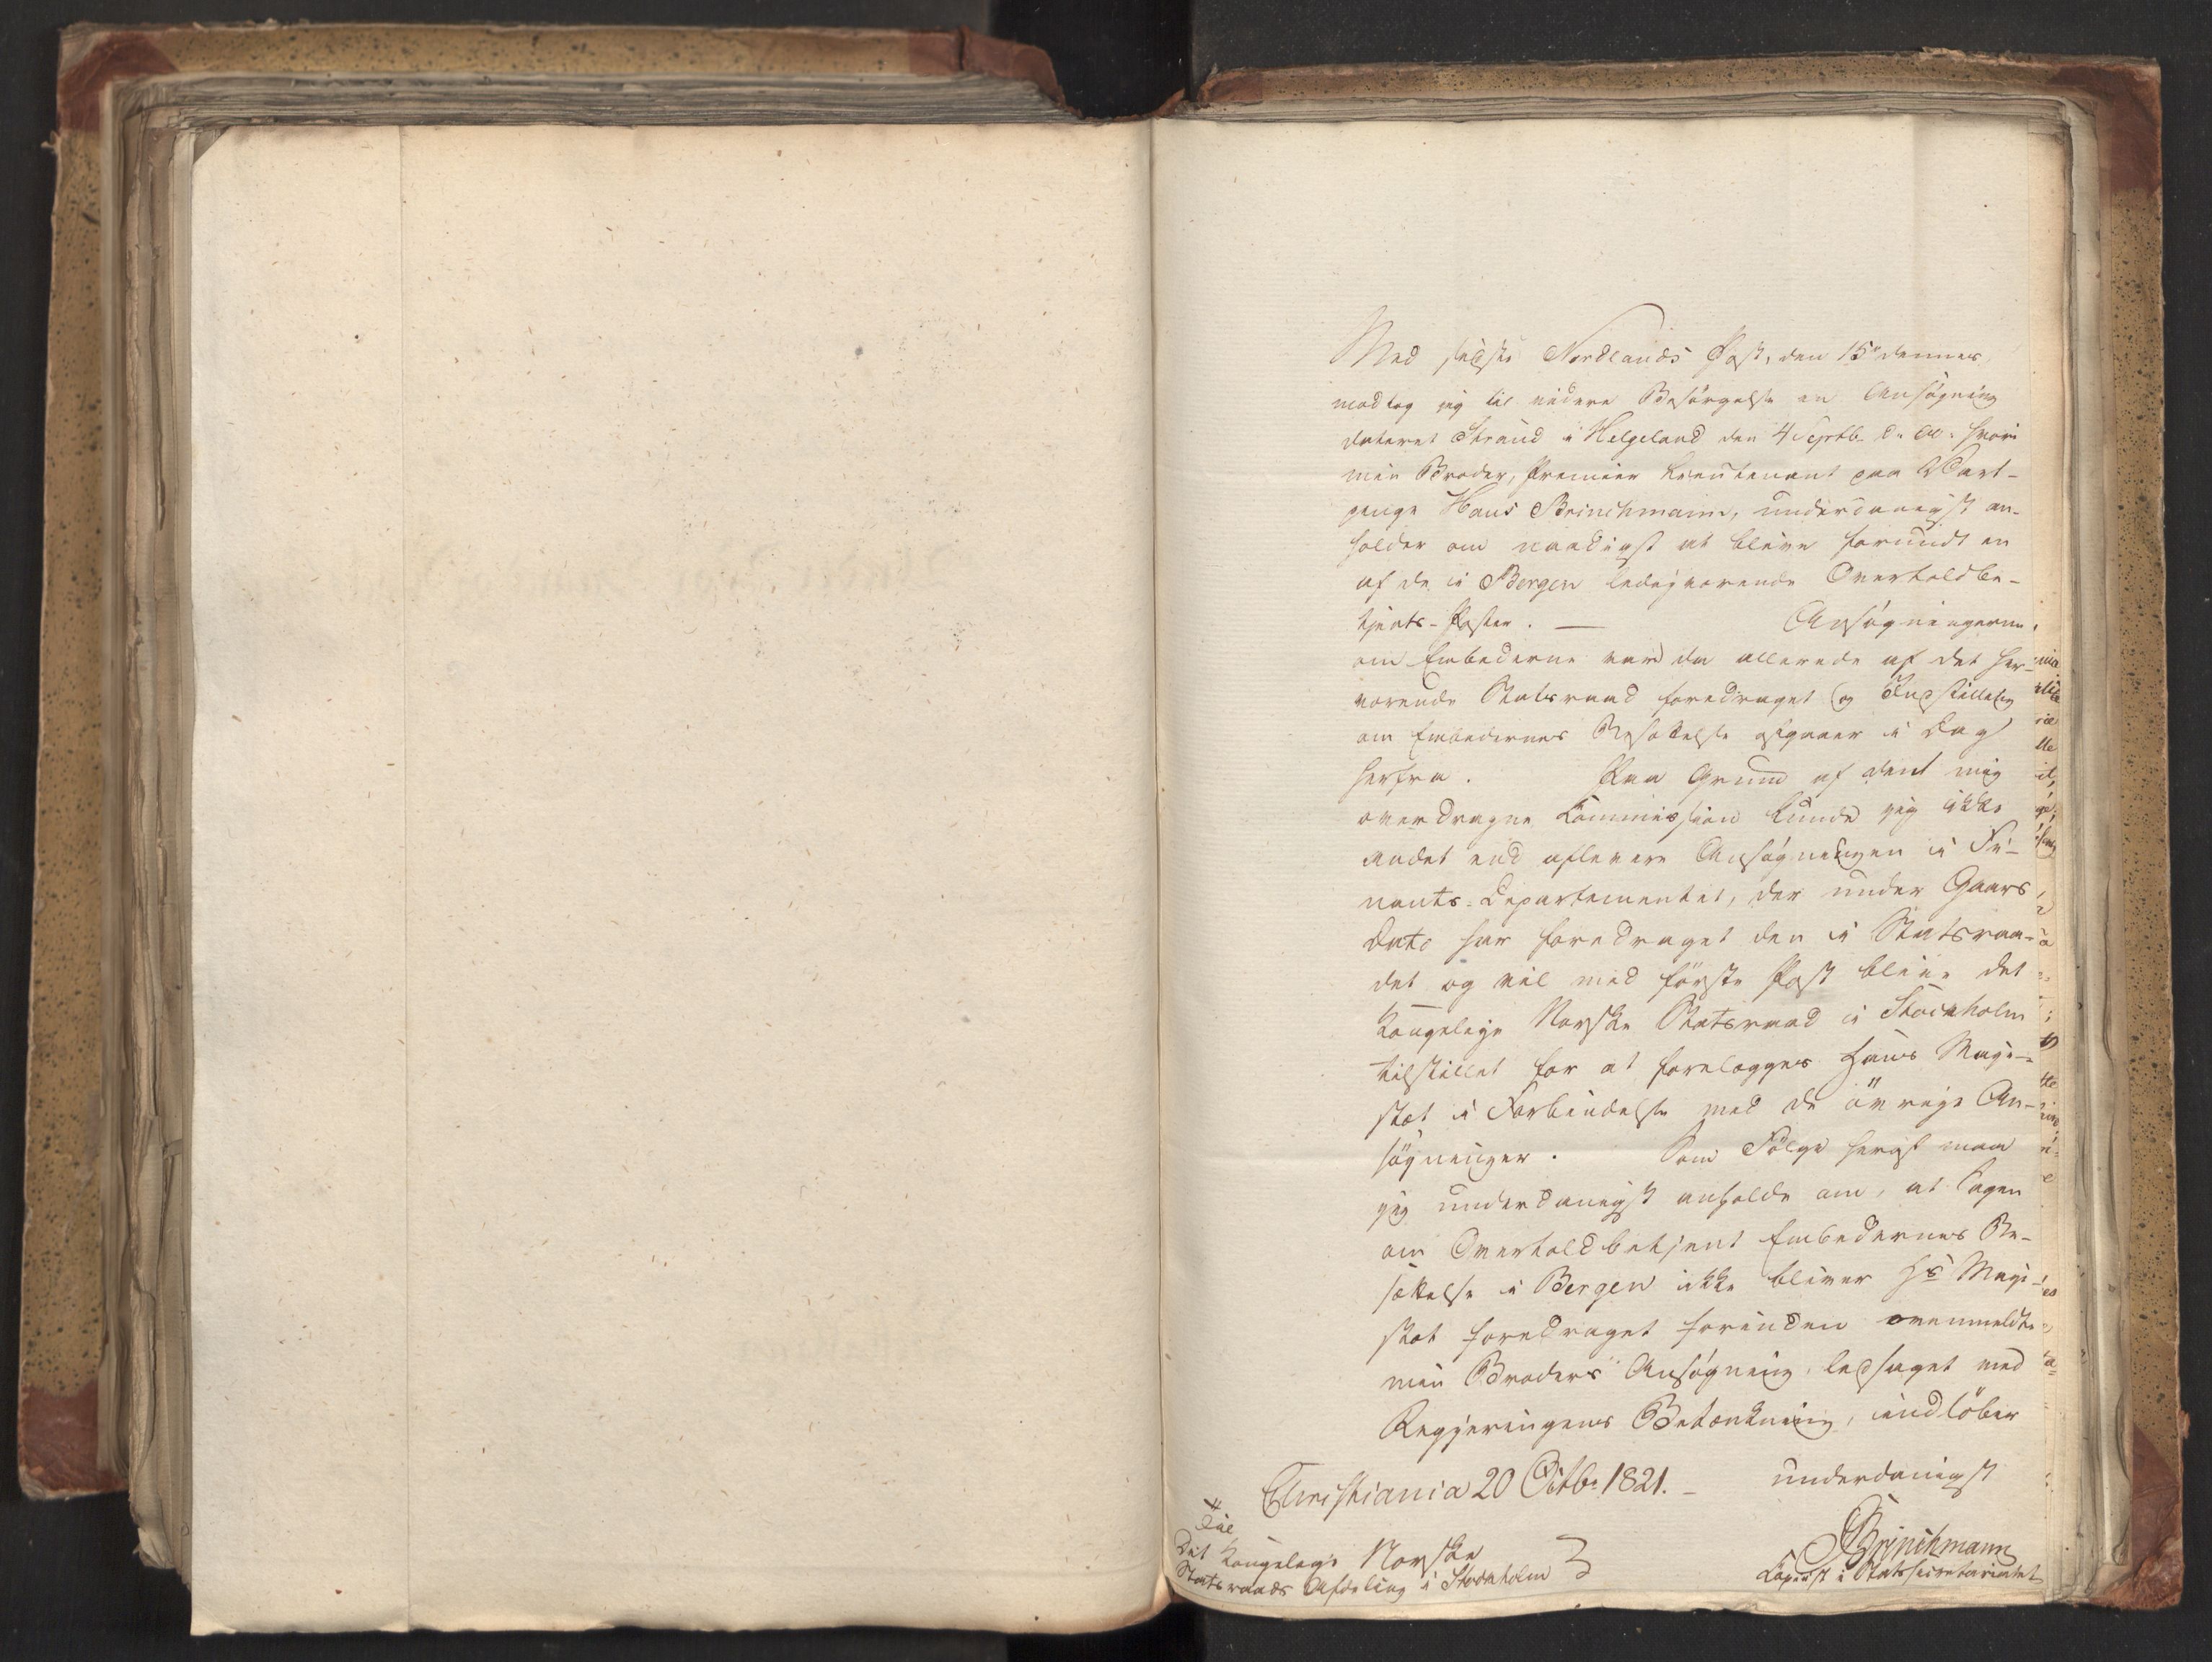 Med sidste Nordlands Post, den 15de dennes
modtog jeg til videre Besørgelse en Ansøgning
dateret Strand i Helgeland den 4 Septb. d. A. hvori
min Broder, Premier Lieutenant paa Vart-
penge Hans Brinchmann, underdanigst an-
holder om naadigst at blive forundt en
af de i Bergen ledigværende Overtoldbe-
tjents-Poster. — Ansøgningerne
om Embederne var da allerede af det her-
værende Statsraad foredraget og Indstilling
om Embedernes Besættelse afgaaer i Dag
herfra. Paa Grund af den mig
overdragne Commission kunde jeg ikke
andet end aflevere Ansøgningen i Fi-
nants-Departementet, der under Gaars
Dato har foredraget den i Statsraa-
det og vil med første Post blive det
Kongelige Norske Statsraad i Stockholm
tilstillet for at forelægges Hans Maje-
stæt i Forbindelse med de øvrige An-
søgninger. Som Følge heraf maa
jeg underdanigst anholde om, at Sagen
om Overtoldbetjent Embedernes Be-
sættelse i Bergen ikke bliver Hs Maje-
stæt foredraget forinden ovenmeldte
min Broders Ansøgning, ledsaget med
Regjeringens Betænkning, indløber
Christiania 20 Octbr 1821. – underdanigst
Brinchmann
Copiist i Statssecretariatet
Til
Det Kongelige Norske
Statsraads Afdeling i Stockholm